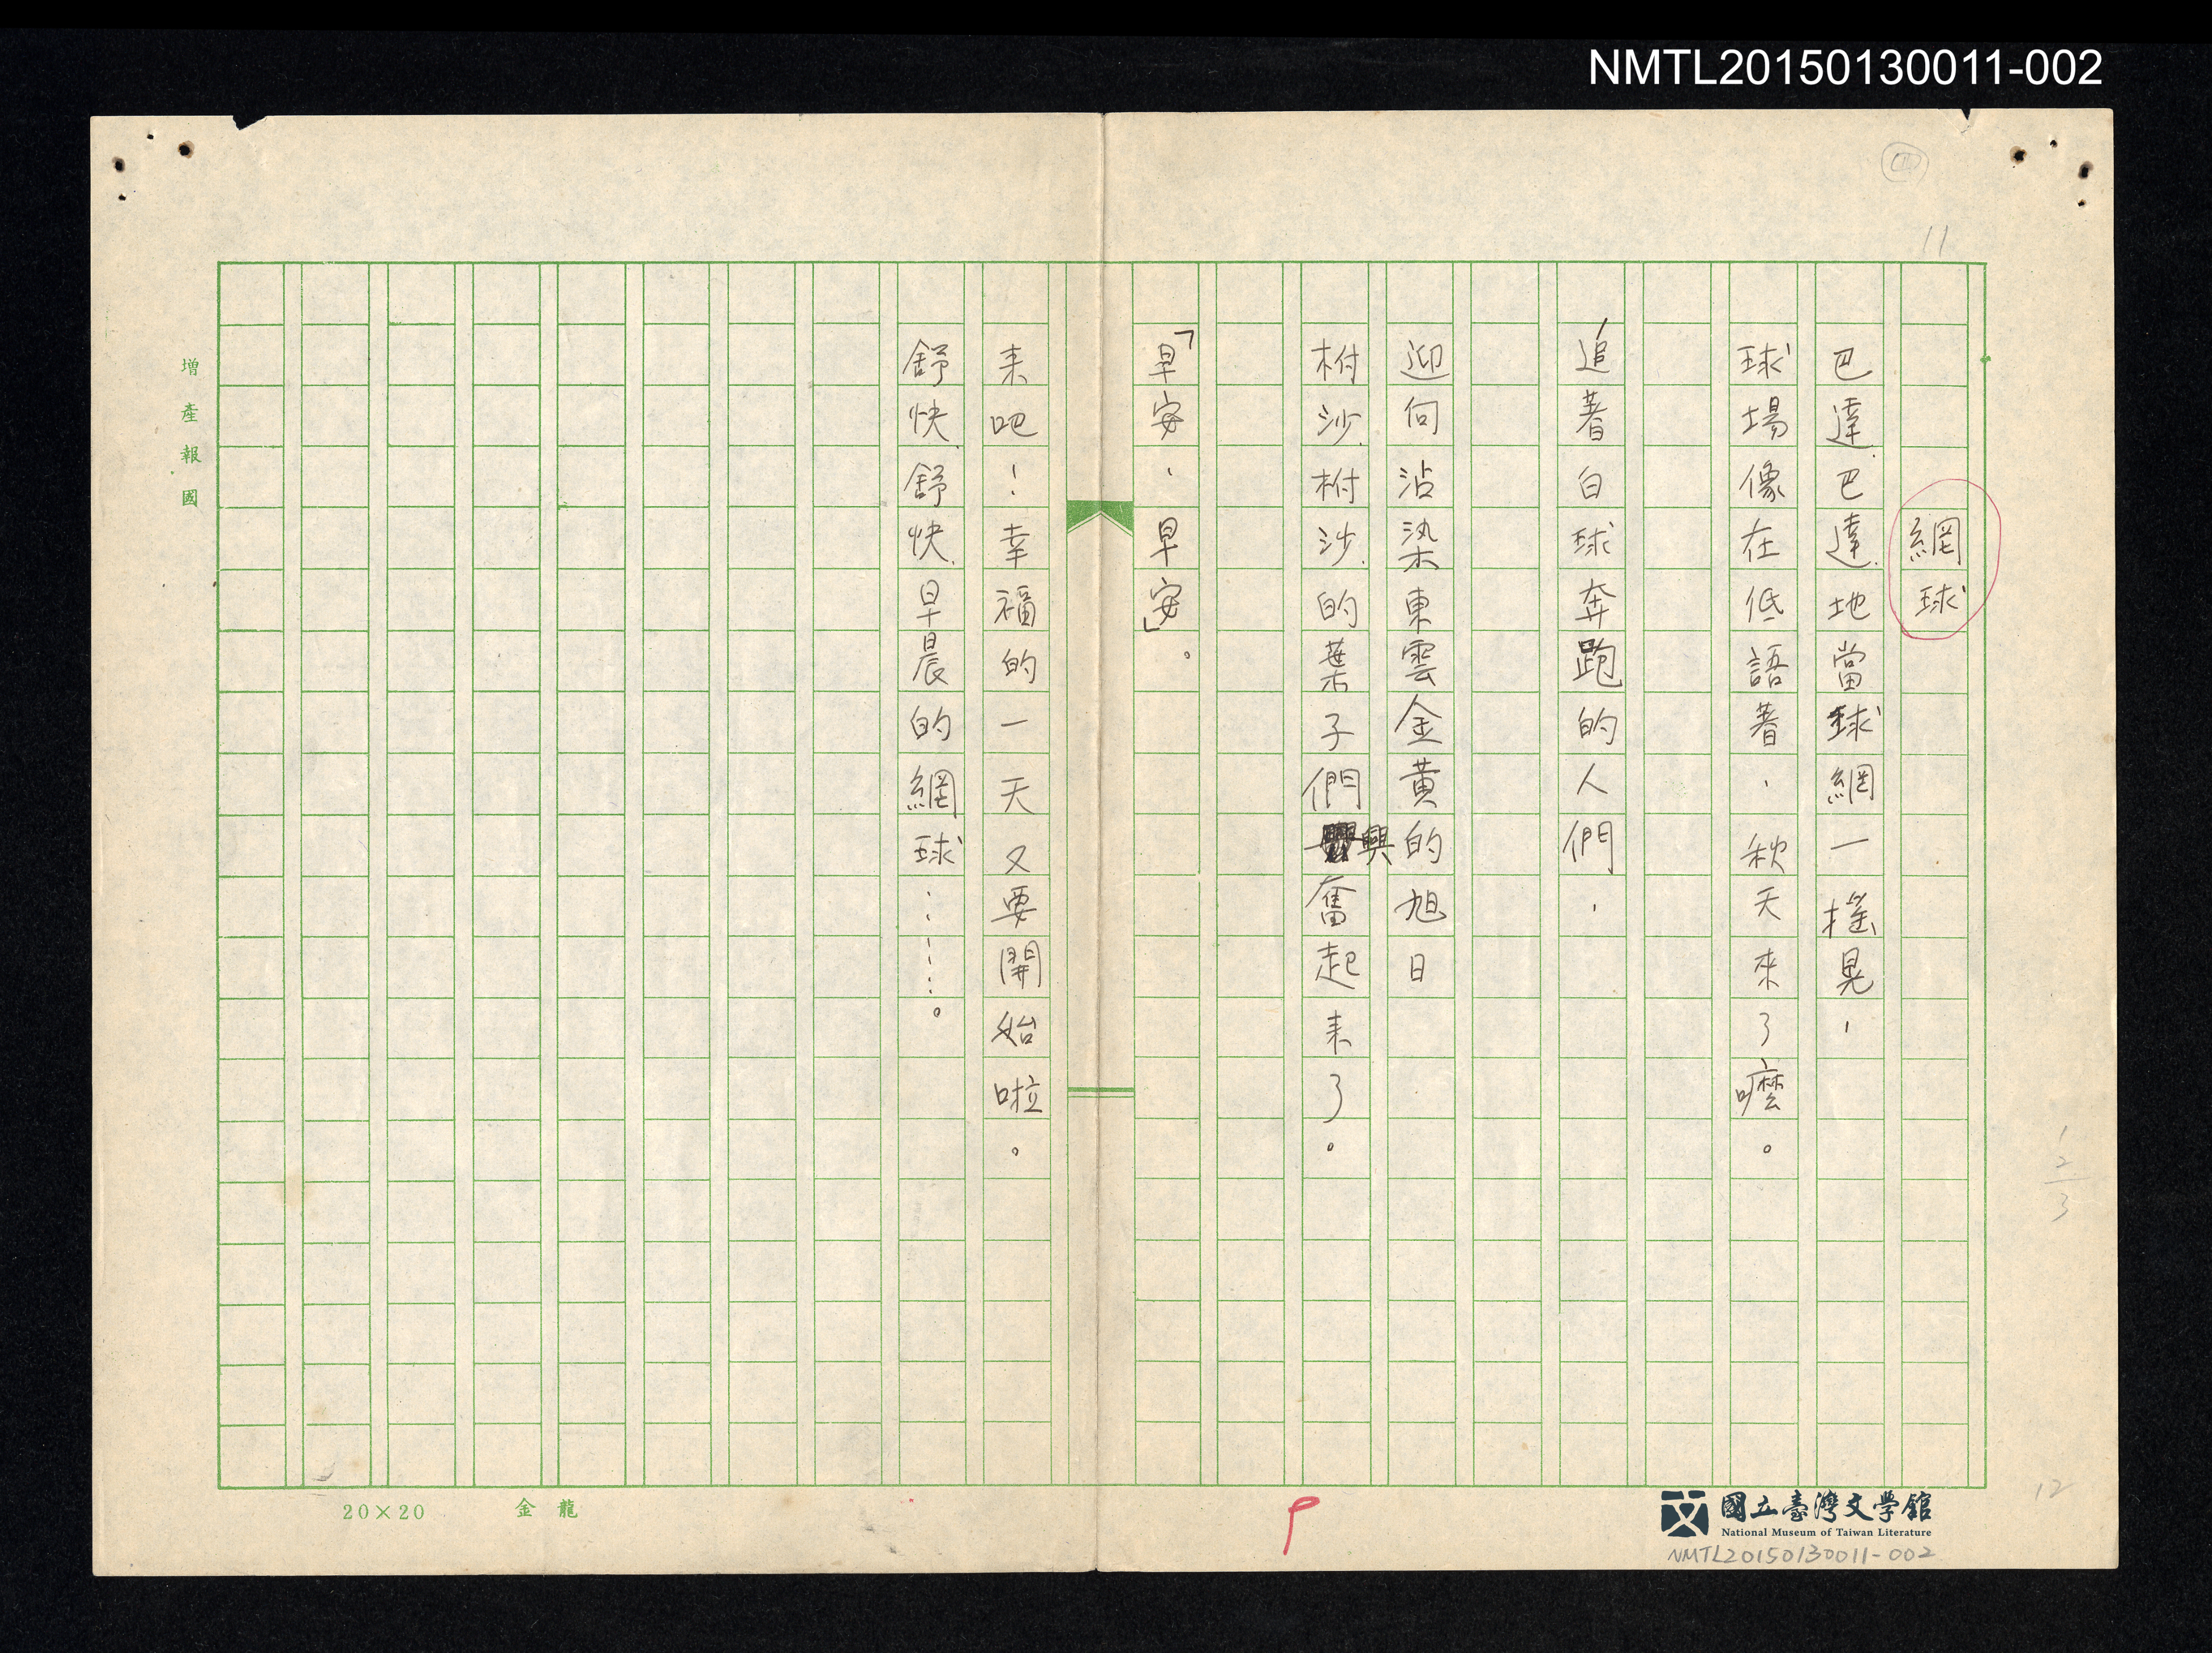 NMTL20150130011-002
11
網球
巴達巴達地當球網一搖晃,
球場像在低語著,秋天來了嚒。
追著白球奔跑的人們,
迎向沾染東雲金黃的旭日
柎沙柎沙的葉子們興奮起来了。
「早安、早安」。
来吧!幸福的一天又要開始啦。
舒快舒快早晨的網球……。
增產報國
20×20 金龍
1
2
3
12
國立臺灣文學館
National Museum of Taiwan Literature
NMTL20150130011-002